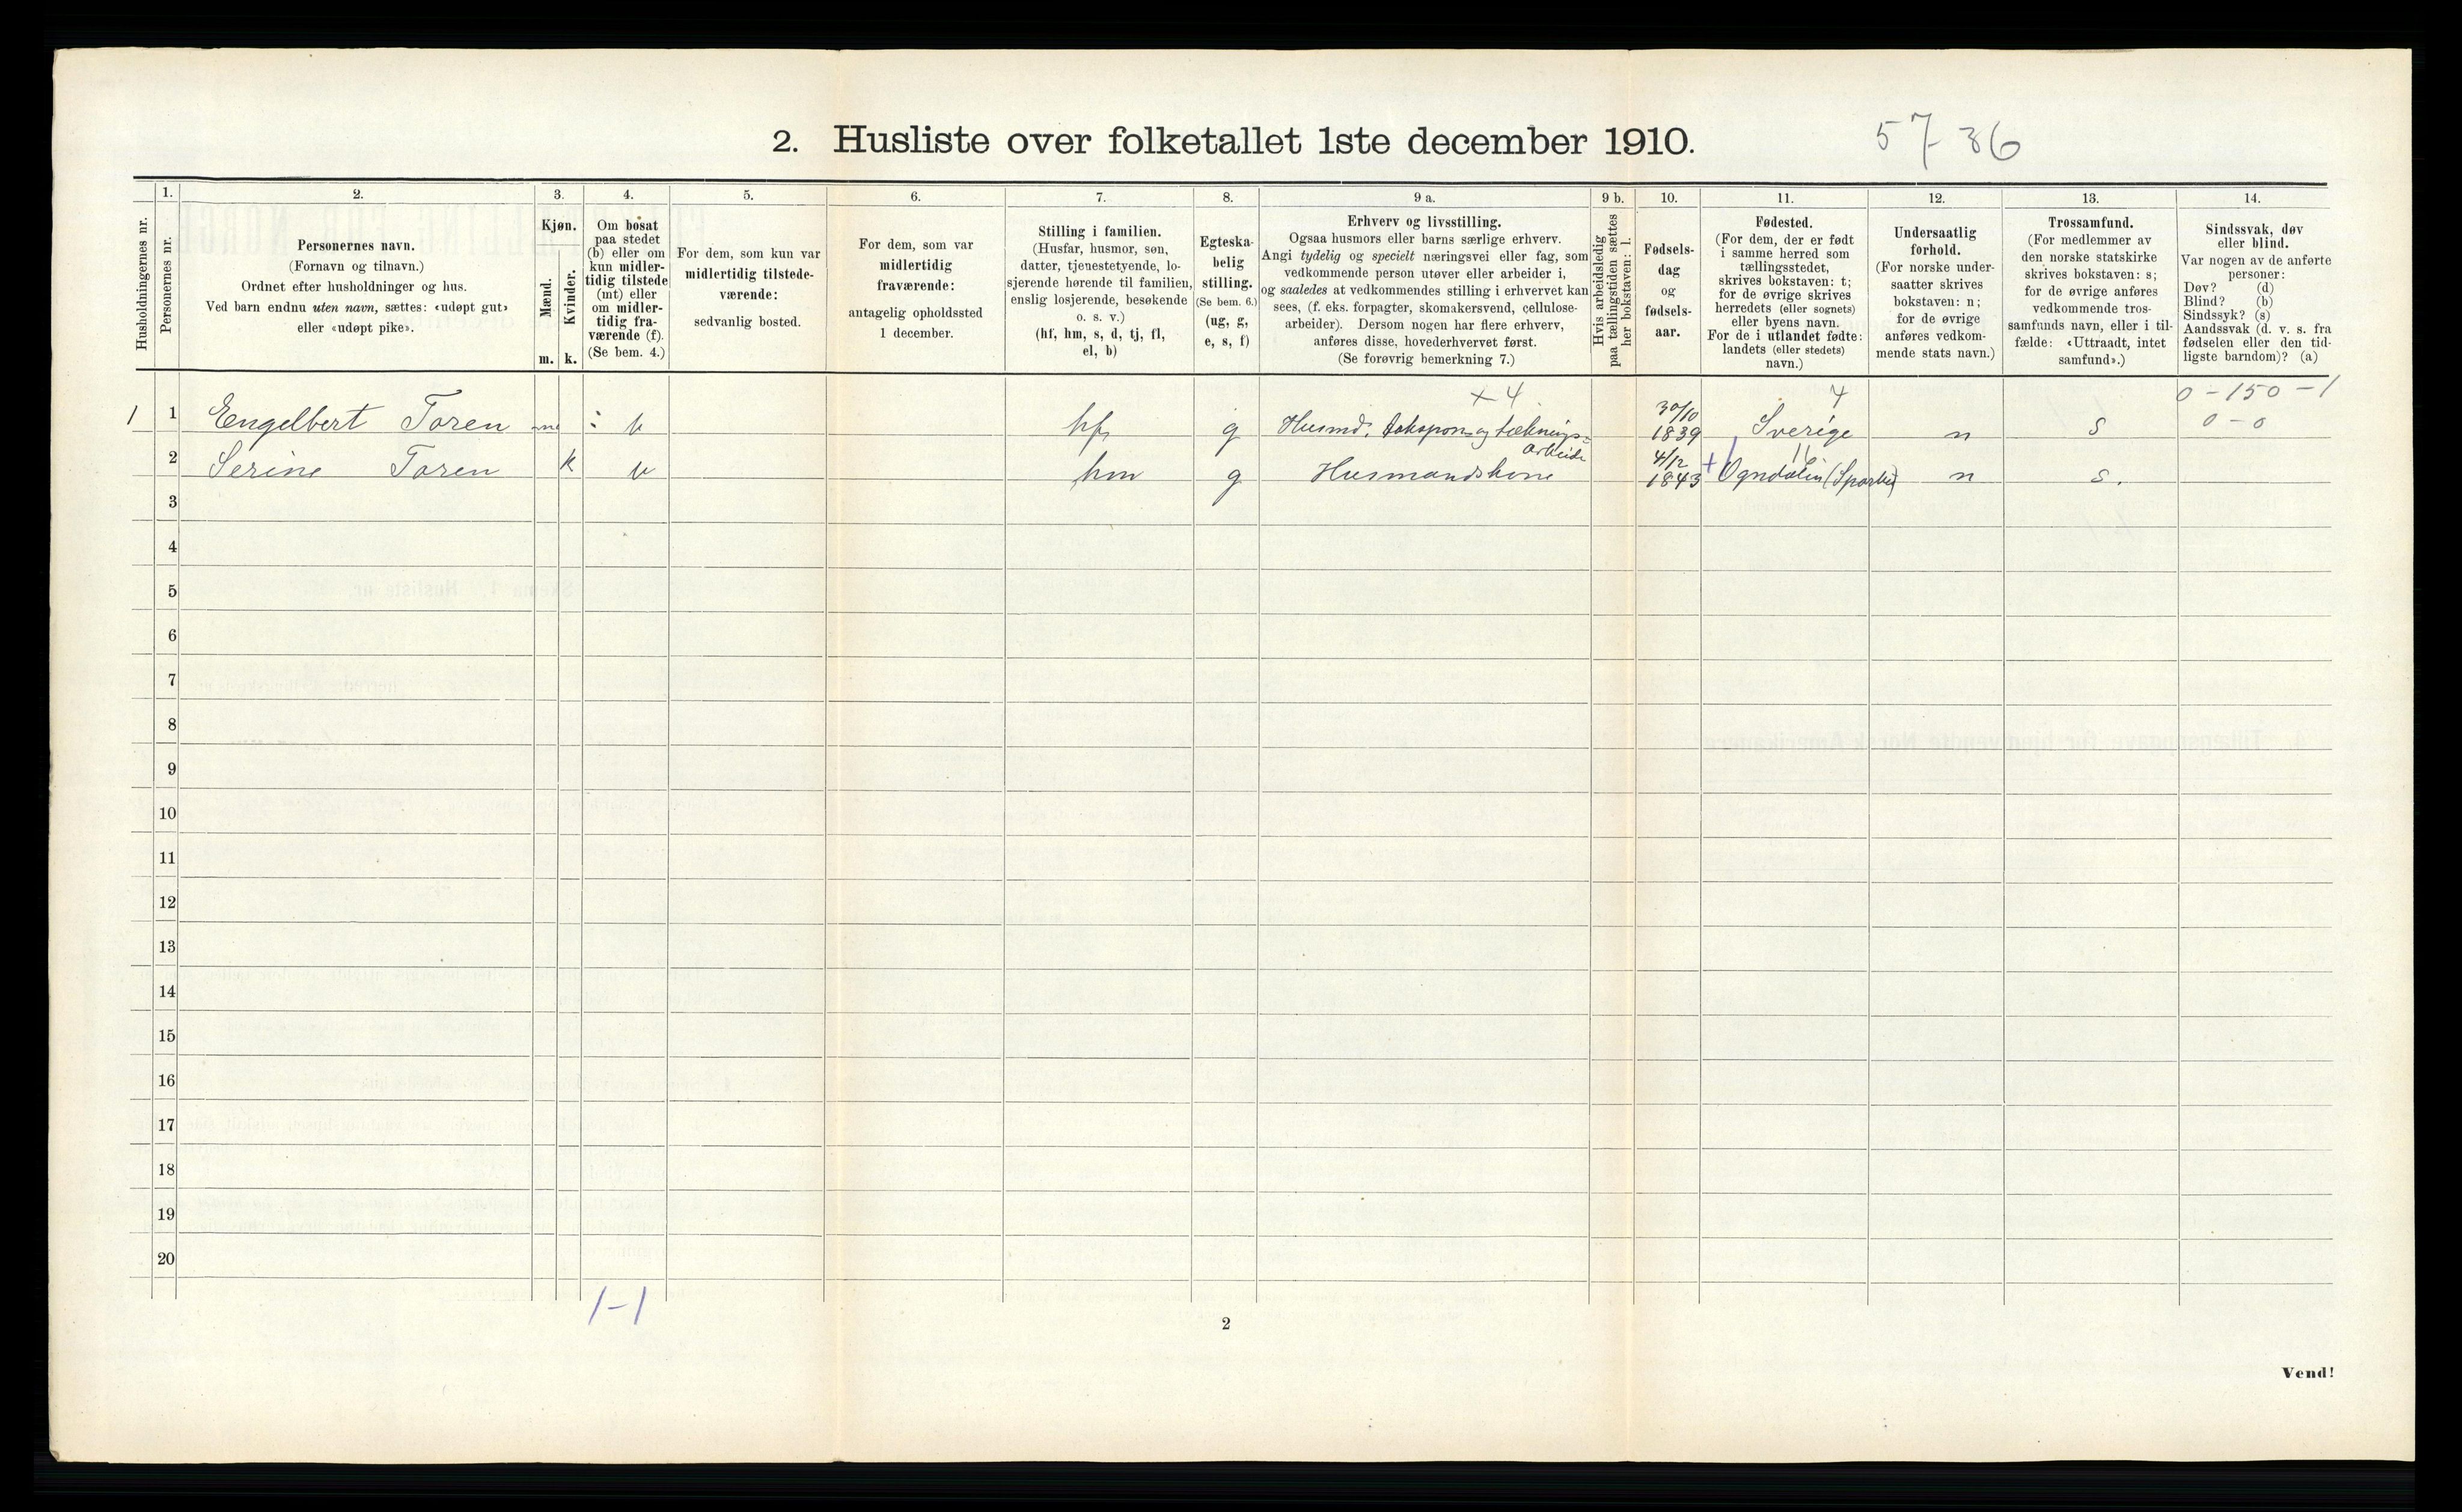 2. Husliste over folketallet 1ste december 1910.
57-36
Husholdningernes nr.
1.
Personernes nr.
2.
Personernes navn.
(Fornavn og tilnavn.)
Ordnet efter husholdninger og hus.
Ved barn endnu uten navn, sættes: «udøpt gut»
eller «udøpt pike».
3.
Kjøn.
Mænd.
Kvinder.
m. k.
4.
Om bosat
paa stedet
(b) eller om
kun midler-
tidig tilstede
(mt) eller
om midler-
tidig fra-
værende (f).
(Se bem. 4.)
5.
For dem, som kun var
midlertidig tilstede-
værende:
sedvanlig bosted.
6.
For dem, som var
midlertidig
fraværende:
antagelig opholdssted
1 december.
7.
Stilling i familien.
(Husfar, husmor, søn,
datter, tjenestetyende, lo-
sjerende hørende til familien,
enslig losjerende, besøkende
o. s. v.)
(hf, hm, s, d, tj, fl,
el, b)
8.
Egteska-
belig
stilling.
(Se bem. 6.)
(ug, g,
e, s, f)
9 a.
Erhverv og livsstilling.
Ogsaa husmors eller barns særlige erhverv.
Angi tydelig og specielt næringsvei eller fag, som
vedkommende person utøver eller arbeider i,
og saaledes at vedkommendes stilling i erhvervet kan
sees, (f. eks. forpagter, skomakersvend, cellulose-
arbeider). Dersom nogen har flere erhverv,
anføres disse, hovederhvervet først.
(Se forøvrig bemerkning 7.)
9 b.
Hvis arbeidsledig
paa tællingstiden sættes
her bokstaven: l.
10.
Fødsels-
dag
og
fødsels-
aar.
11.
Fødested.
(For dem, der er født
i samme herred som
tællingsstedet,
skrives bokstaven: t;
for de øvrige skrives
herredets (eller sognets)
eller byens navn.
For de i utlandet fødte:
landets (eller stedets)
navn.)
12.
Undersaatlig
forhold.
(For norske under-
saatter skrives
bokstaven: n;
for de øvrige
anføres vedkom-
mende stats navn.)
13.
Trossamfund.
(For medlemmer av
den norske statskirke
skrives bokstaven: s;
for de øvrige anføres
vedkommende tros-
samfunds navn, eller i til-
fælde: «Uttraadt, intet
samfund».)
14.
Sindssvak, døv
eller blind.
Var nogen av de anførte
personer:
Døv? (d)
Blind? (b)
Sindssyk? (s)
Aandssvak (d. v. s. fra
fødselen eller den tid-
ligste barndom)? (a)
+ 4 4 0-150-1
1 1 Eengelbert Toren m b hf g Husmd. takspon og tæknings- 30/10 1839 Sverige n s 0-0
arbeide
16
2 Serine Toren k b hm g Husmandskone 4/12 1843 + Ogndalen (Sparbu) n s.
3
4
5
6
7
8
9
10
11
12
13
14
15
16
17
18
19
20
1-1
2
Vend!